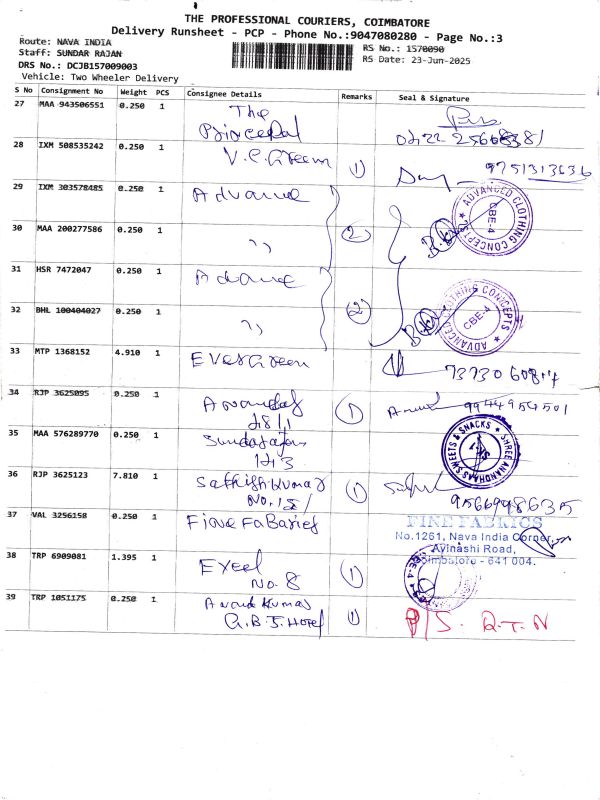 THE PROFESSIONAL COURIERS, COIMBATORE
Delivery Runsheet - PCP - Phone No.:9047080280 - Page No.:3
Route: NAVA INDIA
RS No.: 1570090
Staff: SUNDAR RAJAN
RS Date: 23-Jun-2025
DRS No.: DCJB157009003
Vehicle: Two Wheeler Delivery
S No Consignment No Weight PCS Consignee Details Remarks Seal & Signature
27 MAA 943506551 0.250 1 The
28 IXM 508535242 0.250 1 V.C. Green 1 9751313636
29 IXM 303578485 0.250 1 Advance
ADVANCED CLOTHING CONCEPTS CBE-4
30 MAA 200277586 0.250 1 ,, 2
31 HSR 7472047 0.250 1 Advance
32 BHL 100404027 0.250 1 ,, 2
ADVANCED CLOTHING CONCEPTS CBE-4
33 MTP 1368152 4.910 1 Evergreen
34 RJP 3625095 0.250 1 1 9944954501
35 MAA 576289770 0.250 1
SHREE ANANDHAAS SWEETS & SNACKS
36 RJP 3625123 7.810 1 Sathishkumar 1
37 VAL 3256158 0.250 1
FINE FABRICS
No.1261, Nava India Corner,
Avinashi Road,
Coimbatore - 641 004.
38 TRP 6909081 1.395 1 Excel 1
No. 8
CBE-4
39 TRP 1051175 0.250 1 Anand Kumar
G.B.J. Hotel 1 P/S. R.T.N